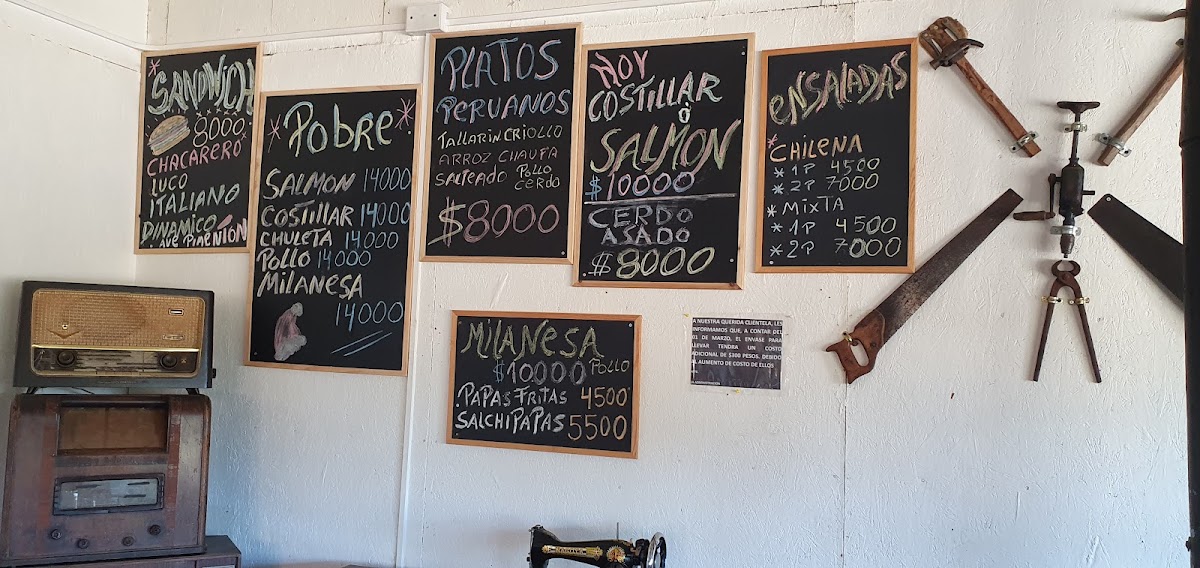 * SANDWICH
8000
CHACARERO
LUCO
ITALIANO
DINAMICO
AVE PIMENTON
* Pobre *
SALMON 14000
COSTILLAR 14000
CHULETA 14000
POLLO 14000
MILANESA
14000
PLATOS
PERUANOS
TALLARIN CRIOLLO
ARROZ CHAUFA
SALTEADO POLLO
CERDO
$8000
HOY
COSTILLAR
Ò
SALMON
$10000
CERDO
ASADO
$8000
eNSALADAS
*CHILENA
* 1P 4500
* 2P 7000
* MIXTA
* 1P 4500
* 2P 7000
MILANESA
$10000 POLLO
PAPAS FRITAS 4500
SALCHIPAPAS 5500
A NUESTRA QUERIDA CLIENTELA, LES
INFORMAMOS QUE, A CONTAR DEL
01 DE MARZO, EL ENVASE PARA
LLEVAR TENDRA UN COSTO
ADICIONAL DE $300 PESOS. DEBIDO
AL AUMENTO DE COSTO DE ELLOS